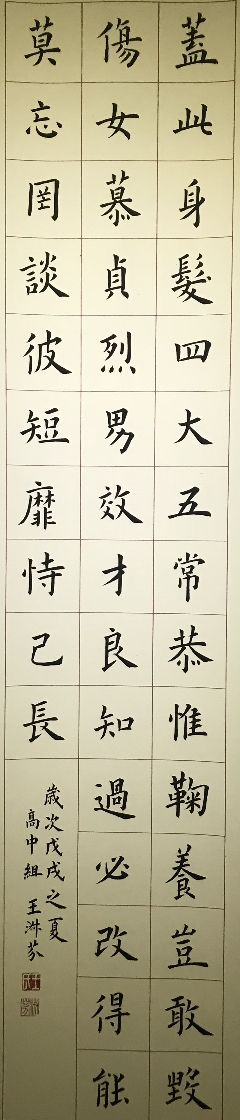 蓋此身髮四大五常恭惟鞠養豈敢毀
傷女慕貞烈男效才良知過必改得能
莫忘罔談彼短靡恃己長
歲次戊戌之夏
高中組 王淋芬